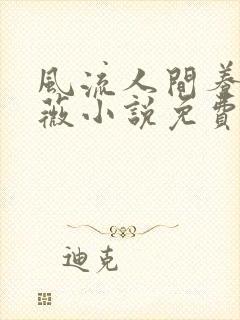 風流人間養
薇小說免費
迪克